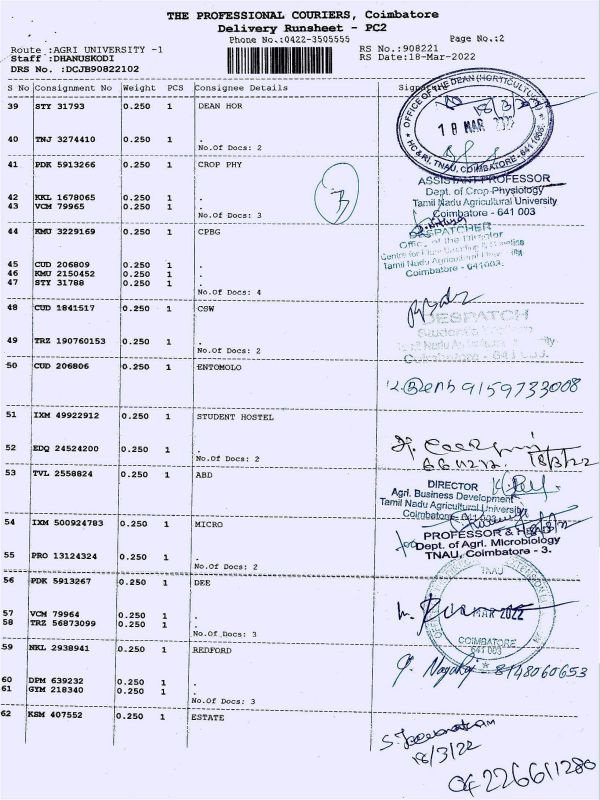 THE PROFESSIONAL COURIERS, Coimbatore
Delivery Runsheet - PC2
Phone No.:0422-3505555
Page No.:2
Route :AGRI UNIVERSITY -1
RS No.:908221
Staff :DHANUSKODI
RS Date:18-Mar-2022
DRS No. :DCJB90822102
S No Consignment No Weight PCS Consignee Details Signature
39 STY 31793 0.250 1 DEAN HOR
OFFICE OF THE DEAN (HORTICULTURE)
18 MAR 2022
HC & RI, TNAU, COIMBATORE - 641 003.
40 TNJ 3274410 0.250 1 .
No.Of Docs: 2
41 PDK 5913266 0.250 1 CROP PHY
ASSISTANT PROFESSOR
Dept. of Crop Physiology
Tamil Nadu Agricultural University
Coimbatore - 641 003
42 KKL 1678065 0.250 1 .
43 VCM 79965 0.250 1 .
No.Of Docs: 3
44 KMU 3229169 0.250 1 CPBG
DESPATCHER
Office of the Director
Centre for Plant Breeding & Genetics
Tamil Nadu Agricultural University
Coimbatore - 641003.
45 CUD 206809 0.250 1 .
46 KMU 2150452 0.250 1 .
47 STY 31788 0.250 1 .
No.Of Docs: 4
48 CUD 1841517 0.250 1 CSW
DESPATCH
49 TRZ 190760153 0.250 1 .
No.Of Docs: 2
Coimbatore - 641 003.
50 CUD 206806 0.250 1 ENTOMOLO
9159733008
51 IXM 49922912 0.250 1 STUDENT HOSTEL
52 EDQ 24524200 0.250 1 .
No.Of Docs: 2
18/3/22
53 TVL 2558824 0.250 1 ABD
DIRECTOR
Agri. Business Development
Tamil Nadu Agricultural University
Coimbatore - 641 003
54 IXM 500924783 0.250 1 MICRO
PROFESSOR & HEAD
Dept. of Agri. Microbiology
TNAU, Coimbatore - 3.
55 PRO 13124324 0.250 1 .
No.Of Docs: 2
56 PDK 5913267 0.250 1 DEE
TNAU
MAR 2022
COIMBATORE
641 003
57 VCM 79964 0.250 1 .
58 TRZ 56873099 0.250 1 .
No.Of Docs: 3
59 NKL 2938941 0.250 1 REDFORD
Nagaraj 8148060653
60 DPM 639232 0.250 1 .
61 GYM 218340 0.250 1 .
No.Of Docs: 3
62 KSM 407552 0.250 1 ESTATE
18/3/22
04226611280